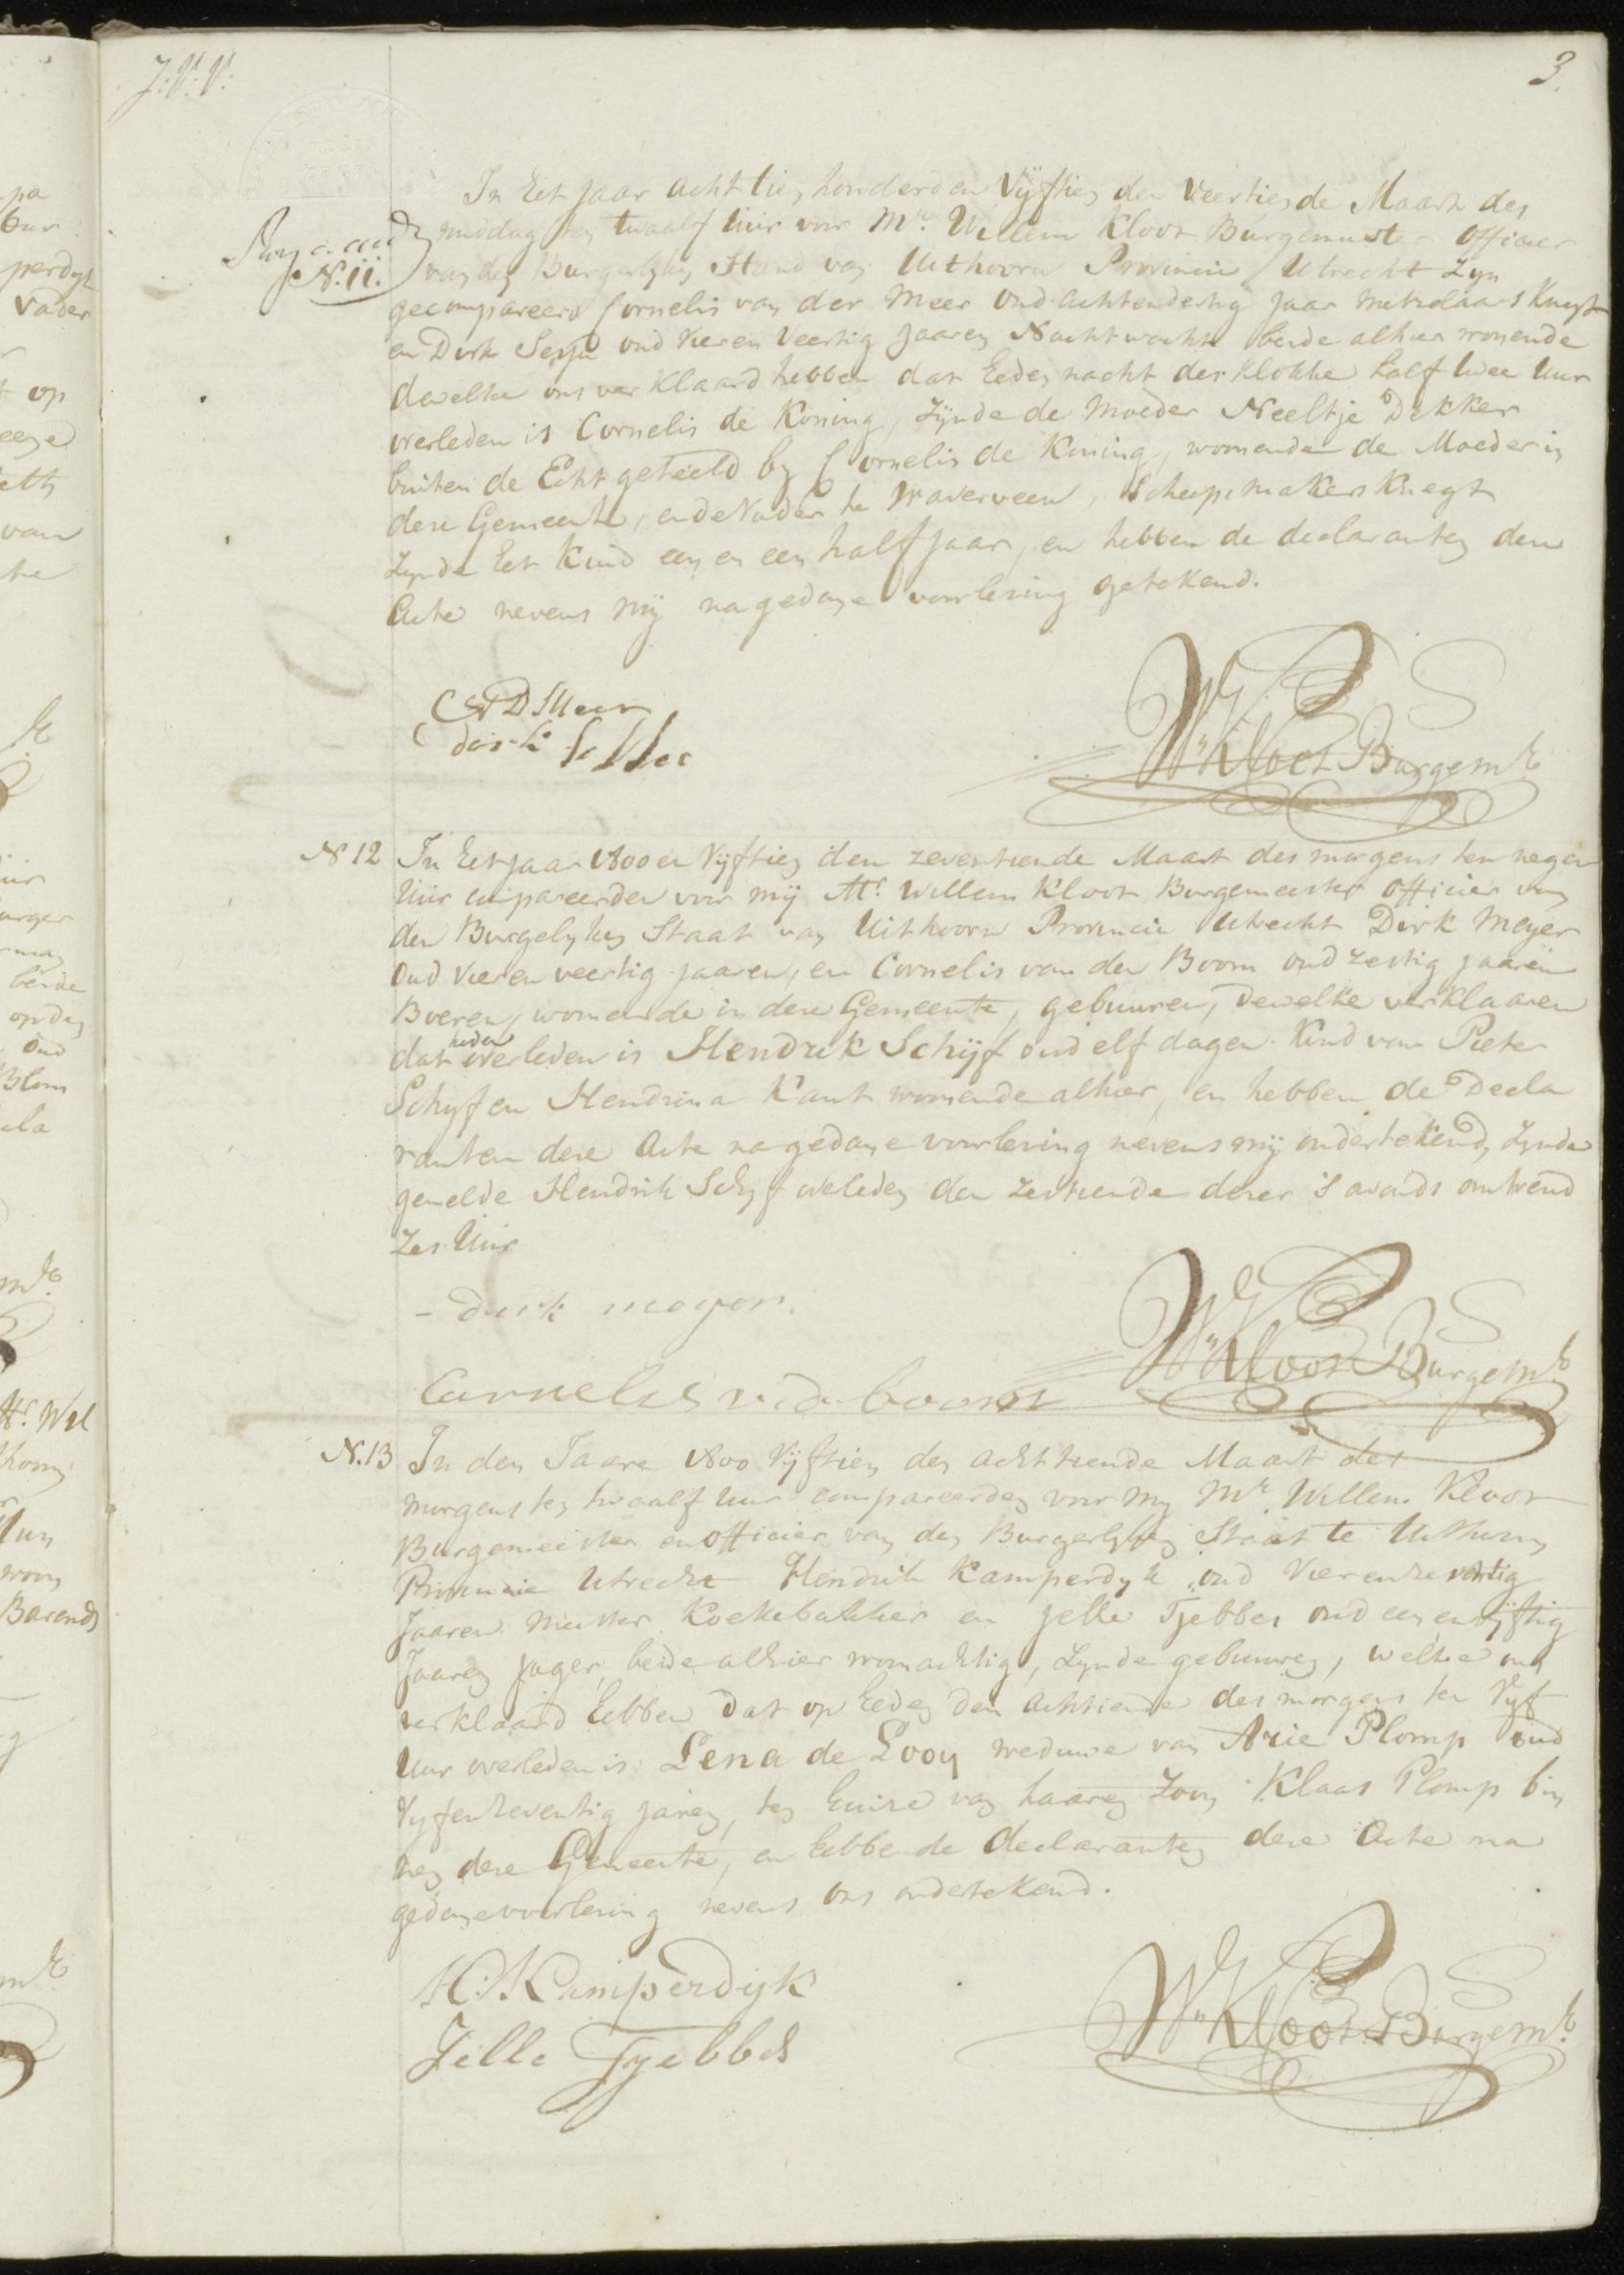 J: V: V:
3.
In het jaar acht tien honderd en Vijftien den Veertiende Maart des
middag ten twaalf uur voor Mr. Willem Kloot Burgemeester Officier
N. 11.
van den Burgerlyken Stand van Uithoorn Provincie Utrecht Zyn
gecompareerd Cornelis van der Meer Oud Achtendertig Jaar Metzelaars Knegt
en Dirk oud Vier en Veertig Jaaren Nachtwacht beide alhier wonende
dewelke ons verklaard hebben dat heden nacht der klokke half twee Uur
overleden is Cornelis de Koning, Zynde de Moeder Neeltje Dekker
buiten de Echt geteeld by Cornelis de Koning, woonende de Moeder in
dese Gemeente, en de Vader te Waverveen, Scheepmakers Knegt
Zynde het Kind een en een half Jaar, en hebben de declaranten dese
Acte nevens Mij na gedane voorlezing getekend.
C V D Meer
dirk
Wm Kloot Burgemr
N 12
In het jaar 1800 en Vijftien den zeventiende Maart des morgens ten negen
Uur compareerden voor mij Mr. Willem Kloot Burgemeester Officier van
den Burgelyken Staat van Uithoorn Provincie Utrecht Dirk Meyer
Oud Vier en veertig jaaren, en Cornelis van den Boom oud zestig jaaren
Boeren, wonende in dese Gemeente, gebuuren, Dewelke verklaaren
heden
dat overleden is Hendrik Schijf oud elf dagen Kind van Pieter
Schyf en Hendrina Kant wonende alhier, en hebben de Decla
ranten dese Acte na gedane voorlezing nevens mij ondertekend, Zynde
gemelde Hendrik Schyf overleden den zestiende deser 's avonds omtrend
Zes Uur
- durk meyer.
Wm Kloot Burgemr
Cornelis v. d. boom
N. 13
In den Jaare 1800 Vijftien den achttiende Maart des
morgens ten twaalf Uur compareerden voor My Mr. Willem Kloot
Burgemeester en Officier van den Burgerlyken Staat te Uithoorn
Provincie Utrecht Hendrik Kamperdyk oud
Jaaren Meester Koekebakker en Jelle Tjebbes oud een en Vijftig
Jaaren Jager, beide alhier woonachtig, Zynde gebuuren, welke ons
verklaard hebben dat op heden den Achtiende des morgens ten Vijf
Uur overleden is Lena de Looy weduwe van Arie Plomp oud
Vyfenzeventig jaren, ten huize van haaren Zoon Klaas Plomp bin
nen dese Gemeente, en hebben de declaranten dese Acte na
gedane voorlezing nevens Ons ondertekend.
H: Kamperdyk
Jelle Tjebbes
Wm Kloot Burgemr